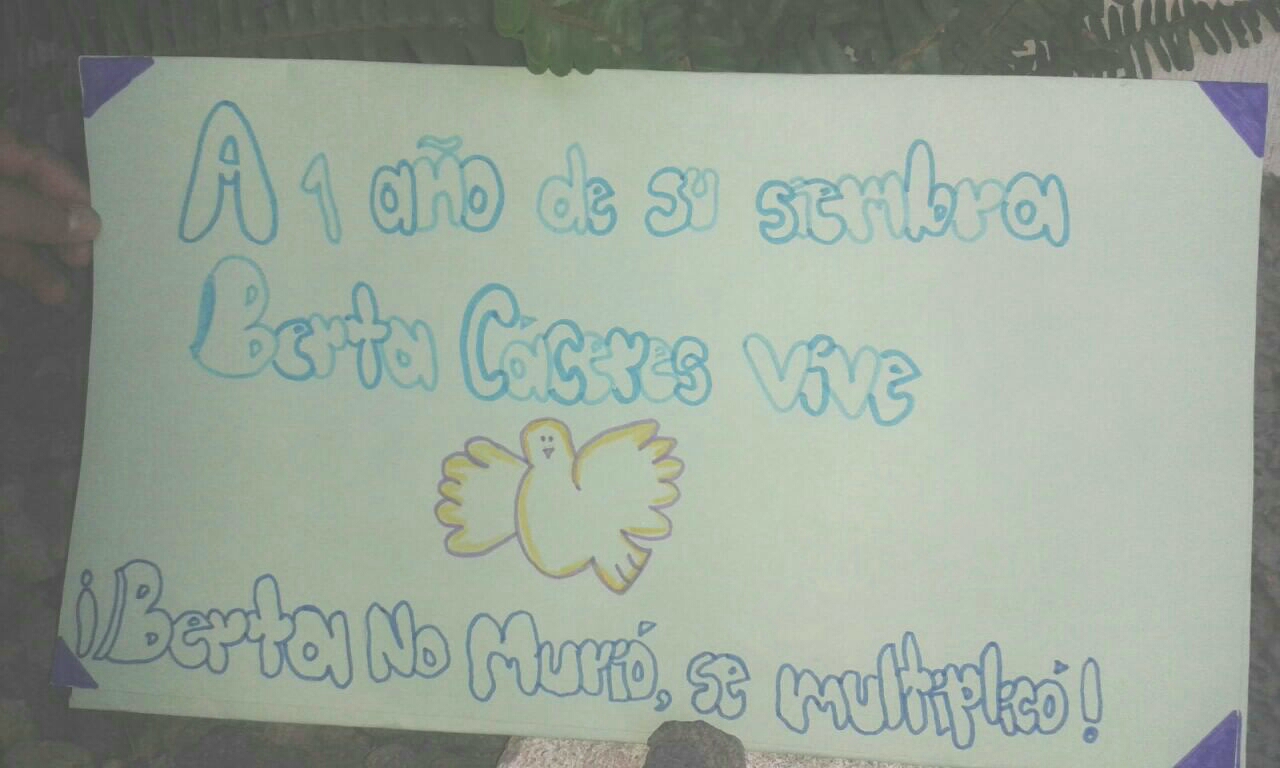 A 1 año de su siembra
Berta Cáceres vive
¡Berta No Murió, se multiplicó!